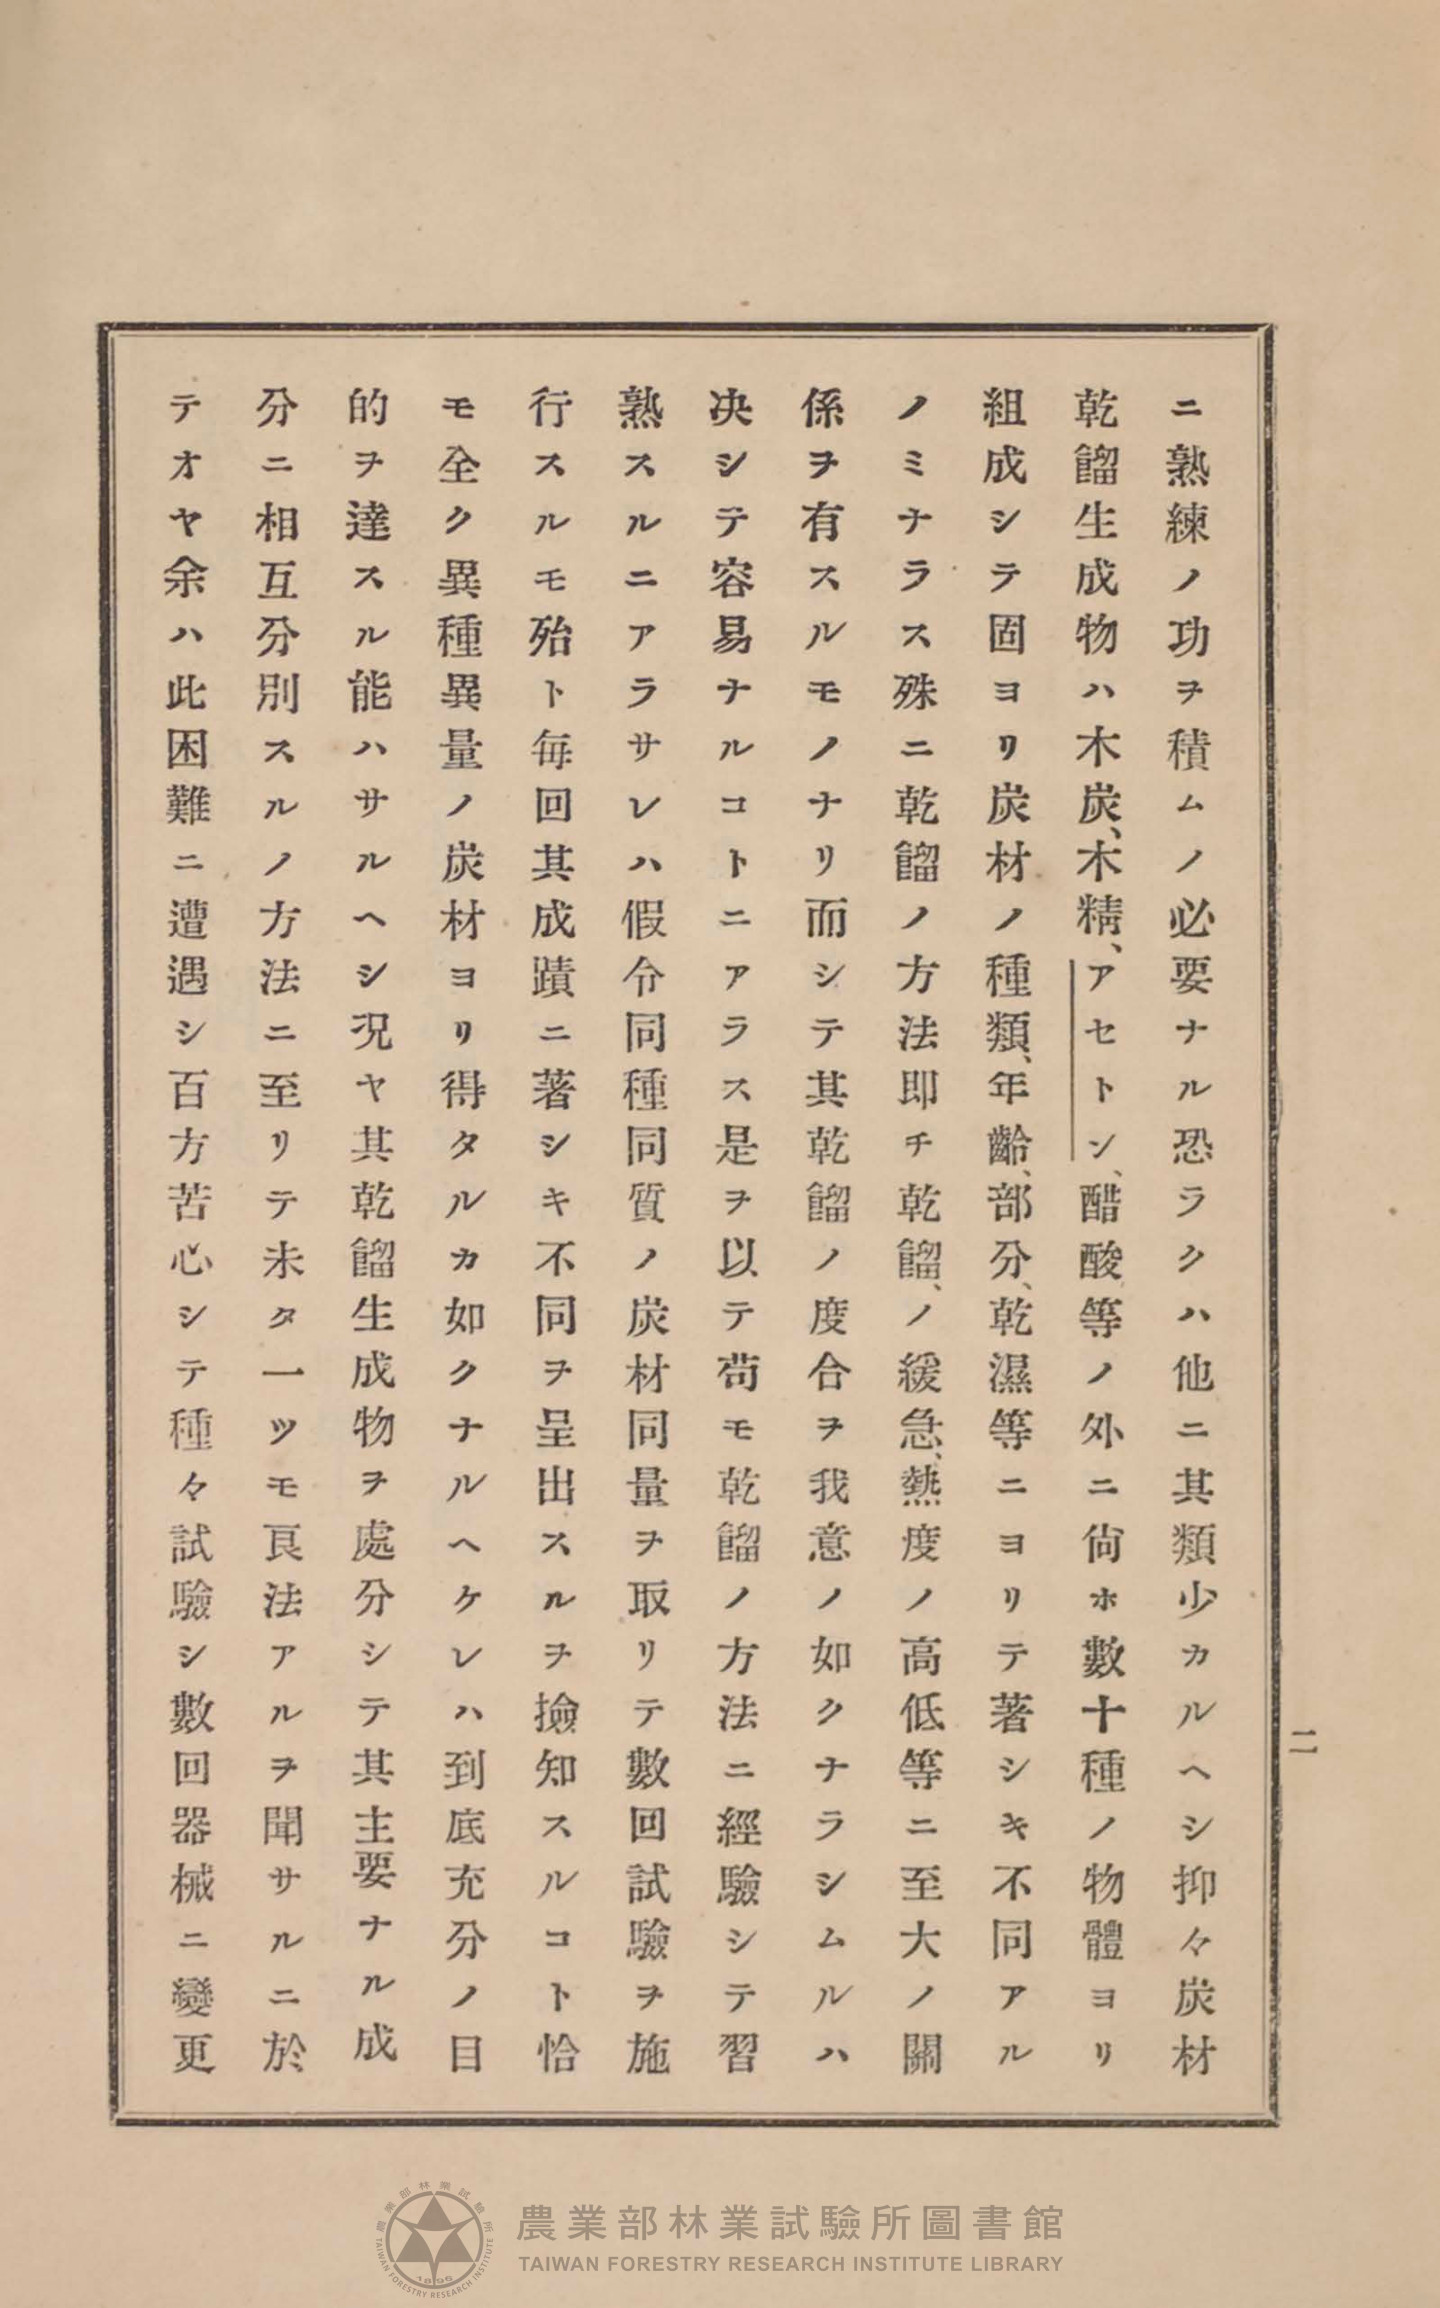 ニ熟練ノ功ヲ積ムノ必要ナル恐ラクハ他ニ其類少カルヘシ抑々炭材
乾餾生成物ハ木炭、木精、アセトン、醋酸等ノ外ニ尙ホ數十種ノ物體ヨリ
組成シテ固ヨリ炭材ノ種類、年齡、部分、乾濕等ニヨリテ著シキ不同アル
ノミナラス殊ニ乾餾ノ方法即チ乾餾、ノ緩急、熱度ノ高低等ニ至大ノ關
係ヲ有スルモノナリ而シテ其乾餾ノ度合ヲ我意ノ如クナラシムルハ
决シテ容易ナルコトニアラス是ヲ以テ苟モ乾餾ノ方法ニ經驗シテ習
熟スルニアラサレハ假令同種同質ノ炭材同量ヲ取リテ數回試驗ヲ施
行スルモ殆ト每回其成蹟ニ著シキ不同ヲ呈出スルヲ撿知スルコト恰
モ全ク異種異量ノ炭材ヨリ得タルカ如クナルヘケレハ到底充分ノ目
的ヲ達スル能ハサルヘシ况ヤ其乾餾生成物ヲ處分シテ其主要ナル成
分ニ相互分別スルノ方法ニ至リテ未タ一ツモ良法アルヲ聞サルニ於
テオヤ余ハ此困難ニ遭遇シ百方苦心シテ種々試驗シ數回器械ニ變更
二
農業部林業試驗所圖書館
TAIWAN FORESTRY RESEARCH INSTITUTE LIBRARY
農業部林業試驗所
TAIWAN FORESTRY RESEARCH INSTITUTE
1896